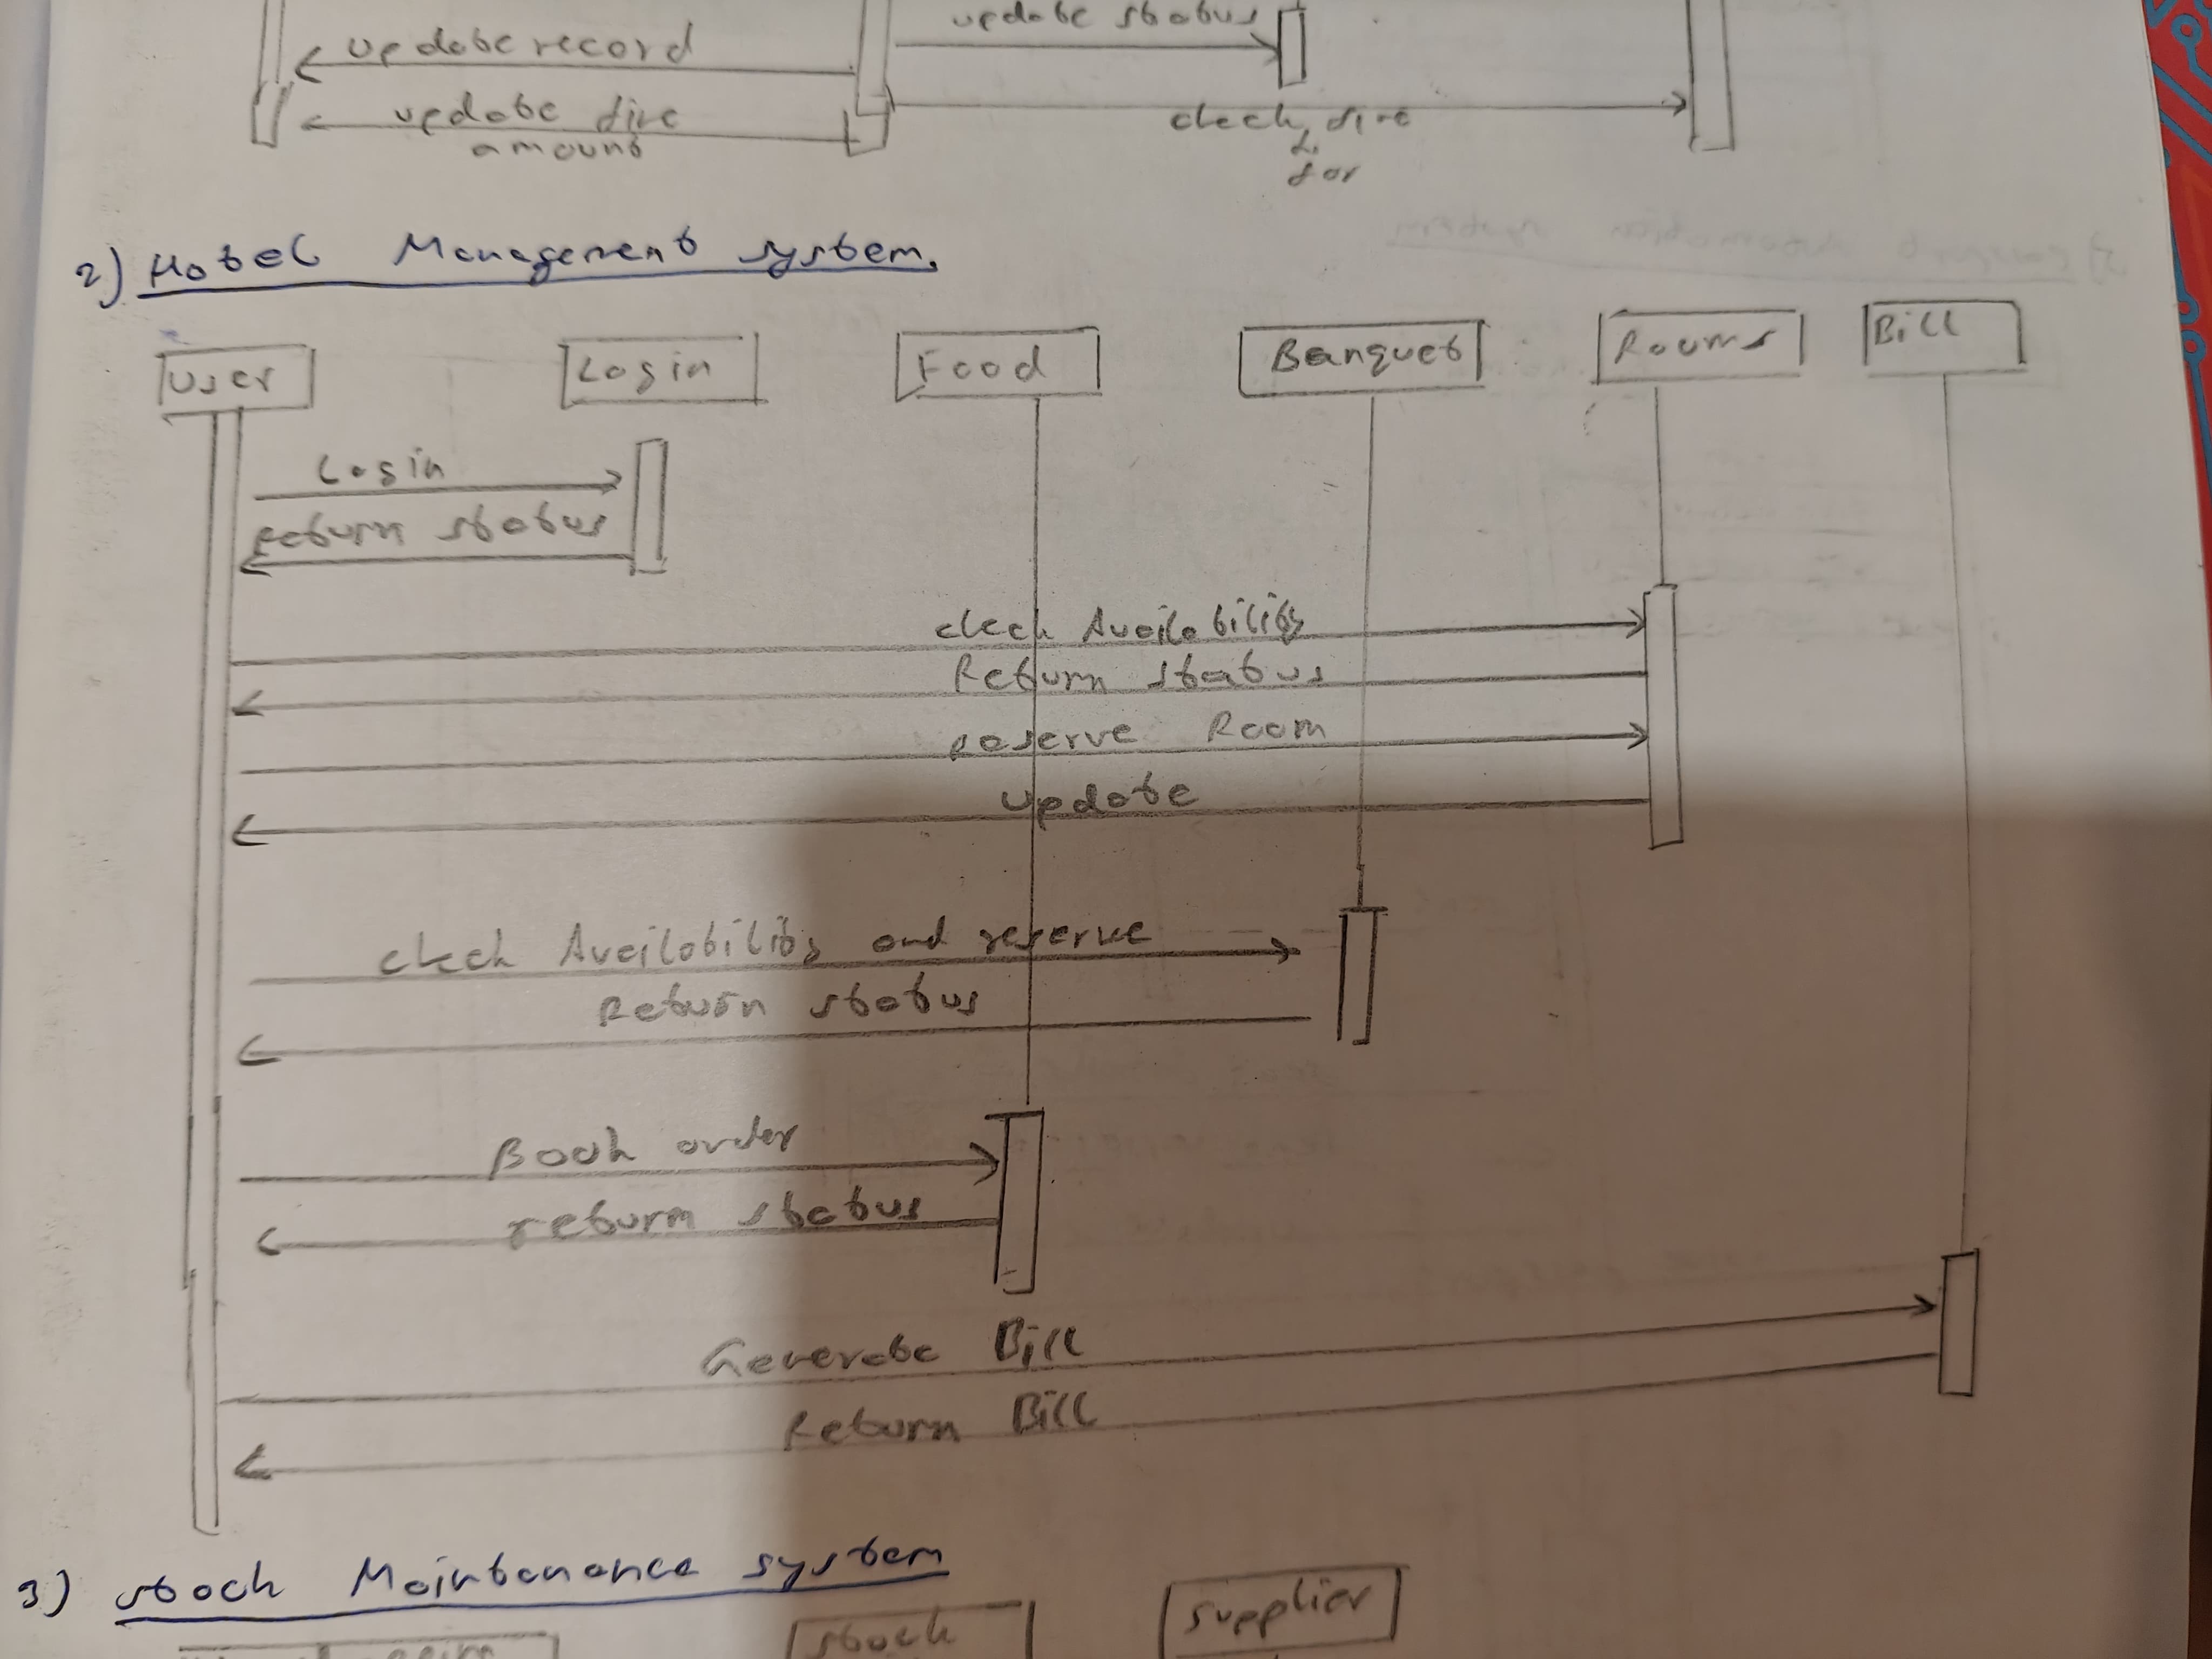 update status
update record
update fine
amount
check fine
for
2) Hotel Management system.
User
Login
Food
Banquet
Rooms
Bill
Login
Return status
check Availability
Return status
Reserve Room
update
check Availability and reserve
Return status
Book order
return status
Generate Bill
Return Bill
3) stock Maintenance system
stock
supplier